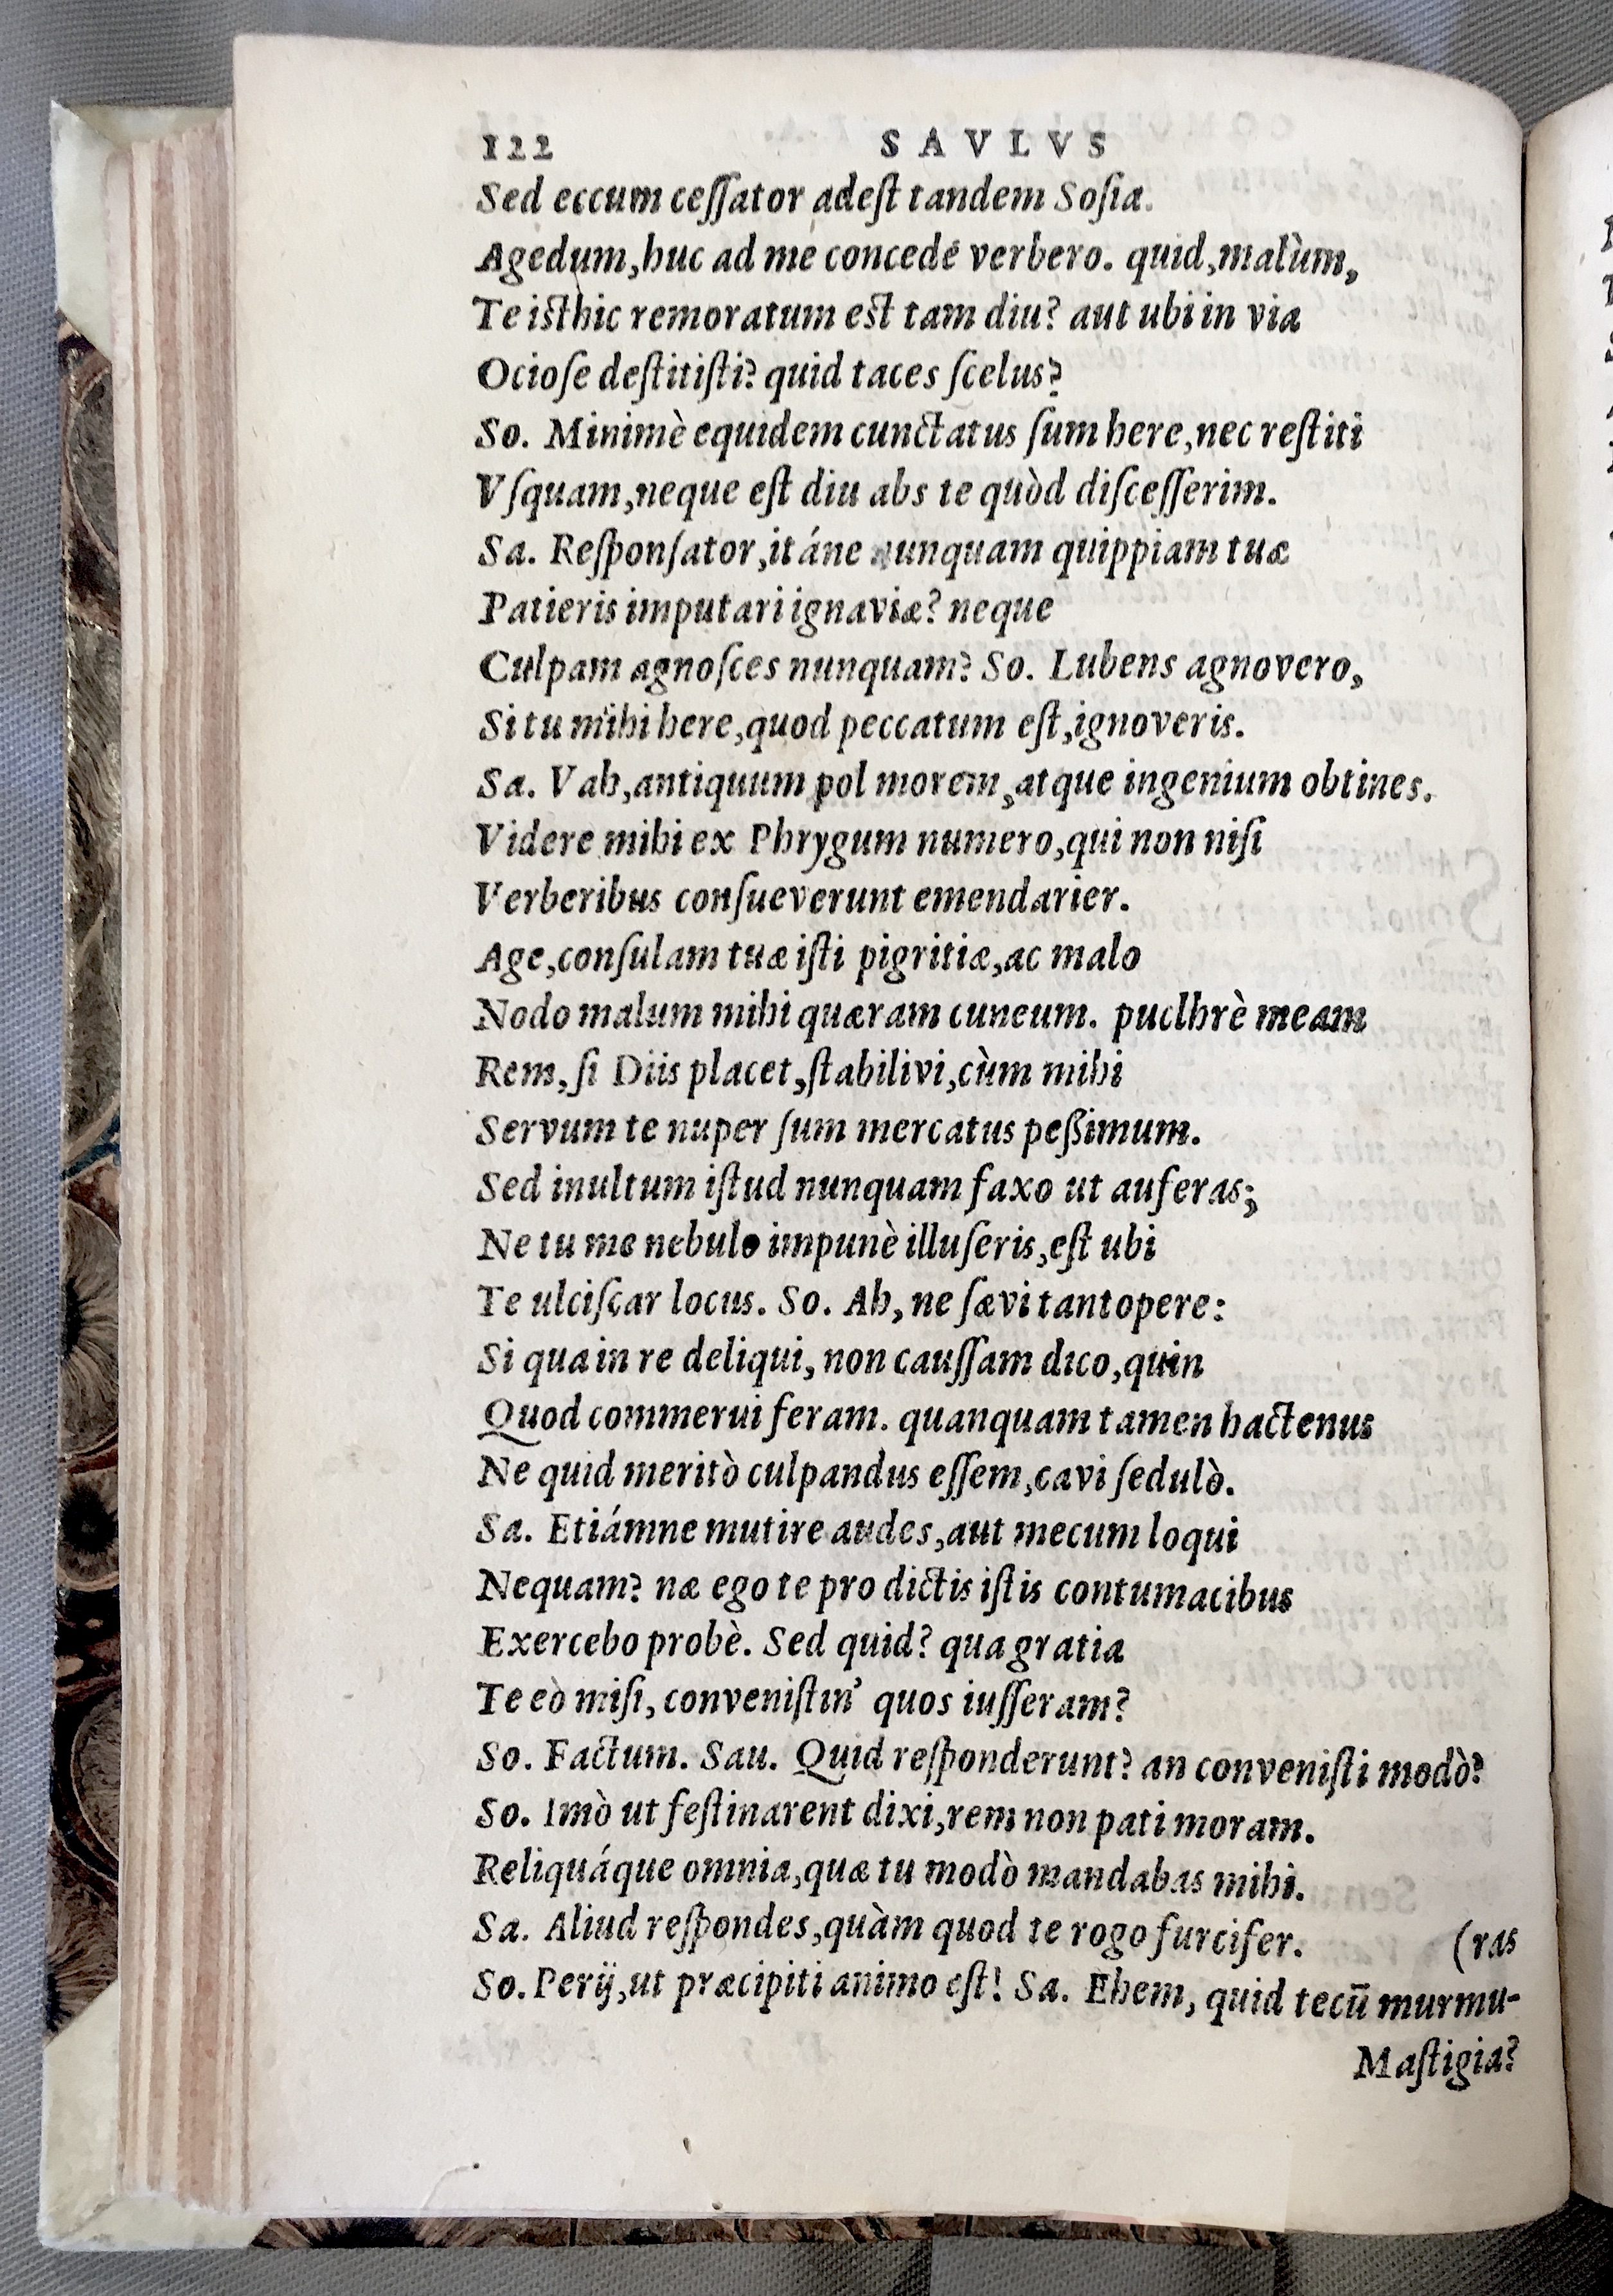 122 SAVLVS
Sed eccum ceſſator adeſt tandem Soſia.
Agedum,huc ad me concede verbero. quid,malùm,
Te iſthic remoratum eſt tam diu? aut ubi in via
Ocioſe deſtitiſti? quid taces ſcelus?
So. Minimè equidem cunctatus ſum here,nec reſtiti
Vſquam,neque eſt diu abs te quòd diſceſſerim.
Sa. Reſponſator,itáne nunquam quippiam tuæ
Patieris imputari ignaviæ? neque
Culpam agnoſces nunquam? So. Lubens agnovero,
Si tu mihi here,quod peccatum eſt,ignoveris.
Sa. Vah,antiquum pol morem,atque ingenium obtines.
Videre mihi ex Phrygum numero,qui non niſi
Verberibus conſueverunt emendarier.
Age,conſulam tuæ iſti pigritiæ,ac malo
Nodo malum mihi quæram cuneum. puclhrè meam
Rem, ſi Diis placet,ſtabilivi,cùm mihi
Servum te nuper ſum mercatus peßimum.
Sed inultum iſtud nunquam faxo ut auferas;
Ne tu me nebulo impunè illuſeris,eſt ubi
Te ulciſcar locus. So. Ah, ne ſævi tantopere:
Si qua in re deliqui, non cauſſam dico,quin
Quod commerui feram. quanquam tamen hactenus
Ne quid meritò culpandus eſſem,cavi ſedulò.
Sa. Etiámne mutire audes,aut mecum loqui
Nequam? næ ego te pro dictis iſtis contumacibus
Exercebo probè. Sed quid? qua gratia
Te eò miſi, conveniſtin' quos iuſſeram?
So. Factum. Sau. Quid reſponderunt? an conveniſti modò?
So. Imò ut feſtinarent dixi,rem non pati moram.
Reliquáque omnia,quæ tu modò mandabas mihi.
Sa. Aliud reſpondes,quàm quod te rogo furcifer. (ras
So. Perij,ut præcipiti animo eſt! Sa. Ehem, quid tecū murmu-
Maſtigia?